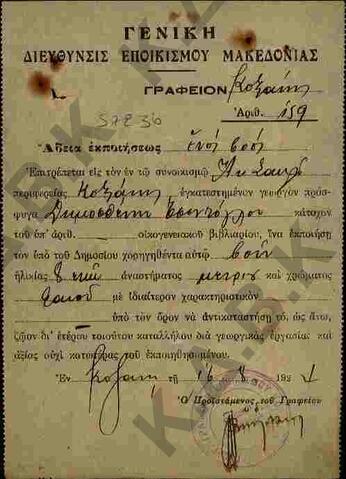 ΓΕΝΙΚΗ
ΔΙΕΥΘΥΝΣΙΣ ΕΠΟΙΚΙΣΜΟΥ ΜΑΚΕΔΟΝΙΑΣ
ΓΡΑΦΕΙΟΝ Κοζάνης
Ἀριθ. 159
Ἄδεια ἐκποιήσεως ἑνός βοός
Ἐπιτρέπεται εἰς τὸν ἐν τῷ συνοικισμῷ
περιφερείας Κοζάνης ἐγκατεστημένον γεωργὸν πρόσ-
φυγα Δημοσθένη κάτοχον
τοῦ ὑπ' ἀριθ. οἰκογενειακοῦ βιβλιαρίου, ἵνα ἐκποιήσῃ
τὸν ὑπὸ τοῦ Δημοσίου χορηγηθέντα αὐτῷ βοῦν
ἡλικίας 8 ἐτῶν ἀναστήματος μετρίου καὶ χρώματος
μὲ ἰδιαίτερον χαρακτηριστικὸν
ὑπὸ τὸν ὅρον νὰ ἀντικαταστήσῃ τό, ὡς ἄνω,
ζῶον δι' ἑτέρου τοιούτου καταλλήλου διὰ γεωργικὰς ἐργασίας καὶ
ἀξίας οὐχὶ κατωτέρας τοῦ ἐκποιηθησομένου.
Ἐν Κοζάνῃ τῇ 16/8/192
Ὁ Προϊστάμενος τοῦ Γραφείου